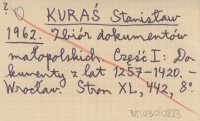 ?
KURAŚ Stanisław
1962. Zbiór dokumentów
małopolskich Część I: Do
kumenty z lat 1257-1420. –
Wrocław. Stron XL, 442, 8°.